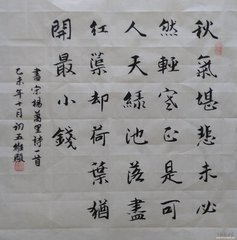 秋氣堪悲未必
然輕寒正是可
人天綠池落盡
紅蕖却荷葉猶
開最小錢
書宋楊萬里詩一首
乙未年十月初五維顯